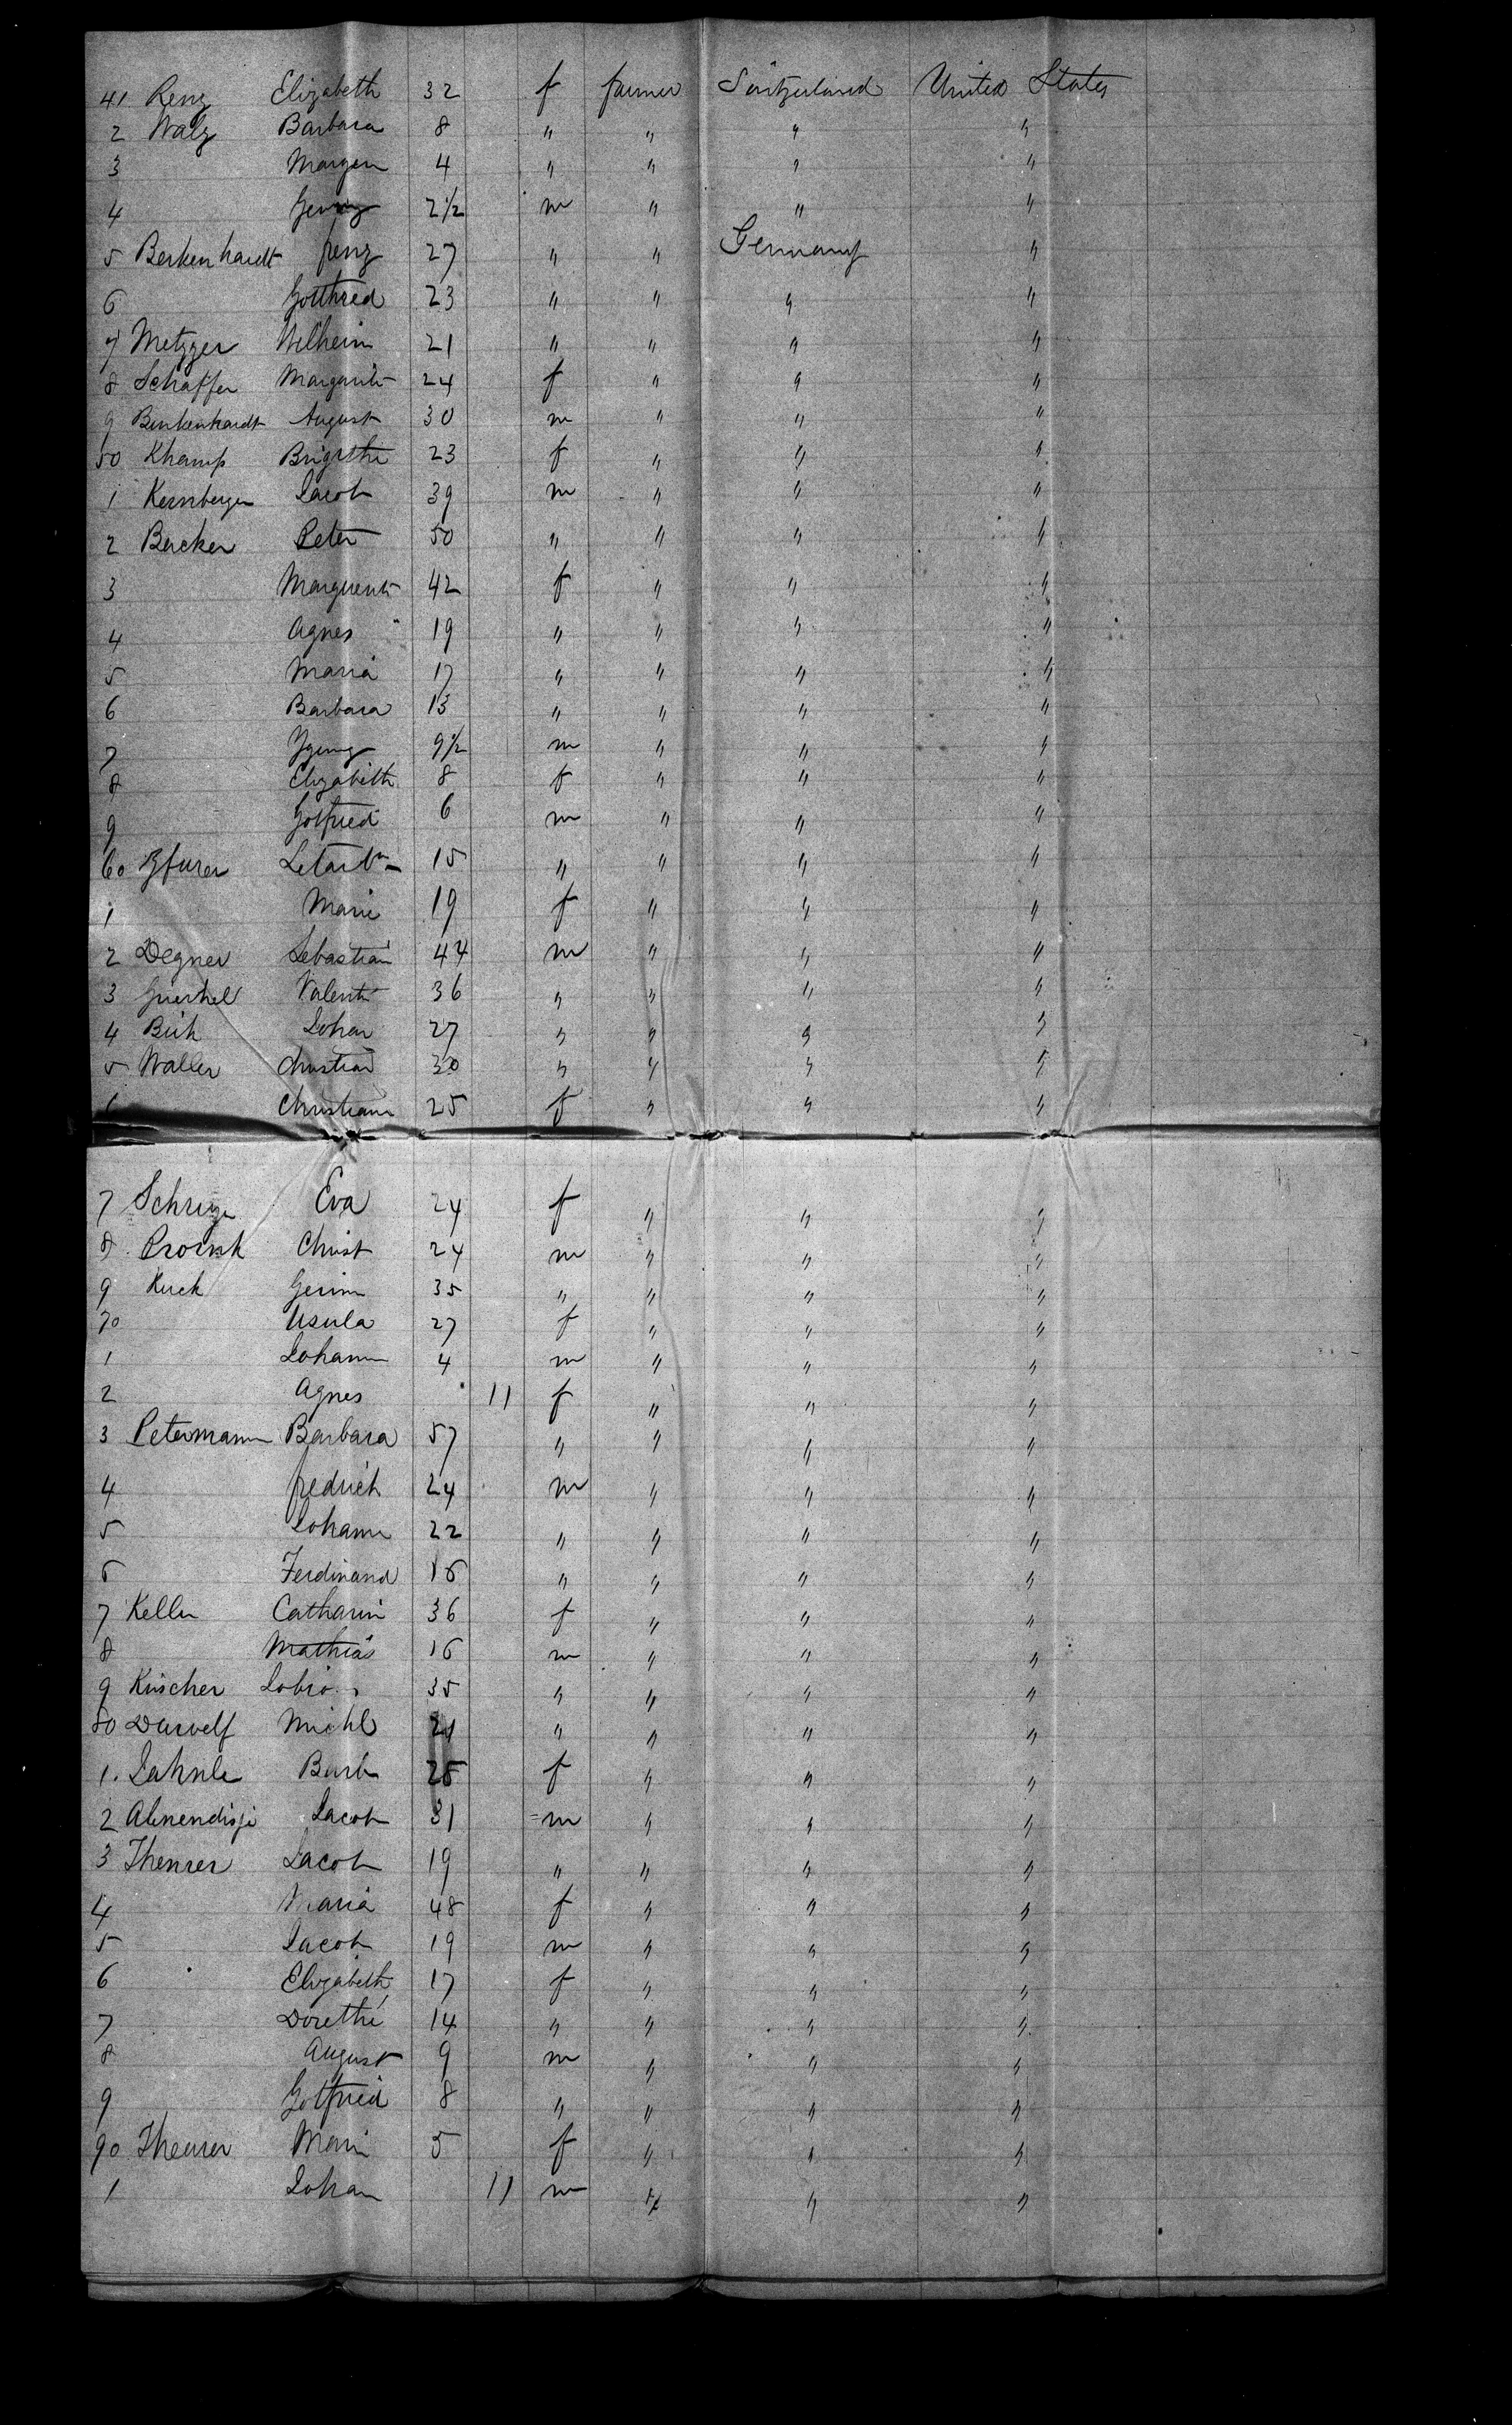 41 Renz Elizabeth 32 f farmer Switzerland United States
2 Walz Barbara 8 " " " "
3 Margen 4 " " " "
4 2½ m " " "
5 Berkenhardt 27 " " Germany "
6 Gotthred 23 " " " "
7 Metzger Wilheim 21 " " " "
8 Schaffer Margarit 24 f " " "
9 Benkenhardt August 30 m " " "
50 Khamp Brigithe 23 f " " "
1 Kernberger Jacob 39 m " " "
2 Backer Peter 50 " " " "
3 Marguerit 42 f " " "
4 Agnes 19 " " " "
5 Maria 17 " " " "
6 Barbara 13 " " " "
7 9½ m " " "
8 Elizabeth 8 f " " "
9 Gotfried 6 m " " "
60 15 " " " "
1 Marie 19 f " " "
2 Degner Sebastian 44 m " " "
3 Valent 36 " " " "
4 Johan 27 " " " "
5 Waller Christian 30 " " " "
Christiane 25 f " " "
7 Eva 24 f " " "
8 Christ 24 m " " "
9 Kuch 35 " " " "
70 Usula 27 f " " "
1 Johann 4 m " " "
2 Agnes 11 f " " "
3 Petermann Barbara 57 " " " "
4 fredrich 24 m " " "
5 Johann 22 " " " "
6 Ferdinand 16 " " " "
7 Keller Catharin 36 f " " "
8 Mathias 16 m " " "
9 Kirscher 35 " " " "
80 Michl 21 " " " "
1. Barb 25 f " " "
2 Jacob 31 m " " "
3 Theurer Jacob 19 " " " "
4 Maria 48 f " " "
5 Jacob 19 m " " "
6 Elizabeth 17 f " " "
7 Dorethe 14 " " " "
8 August 9 m " " "
9 Gotfried 8 " " " "
90 Theurer Mari 5 f " " "
1 Johan 11 m " " "